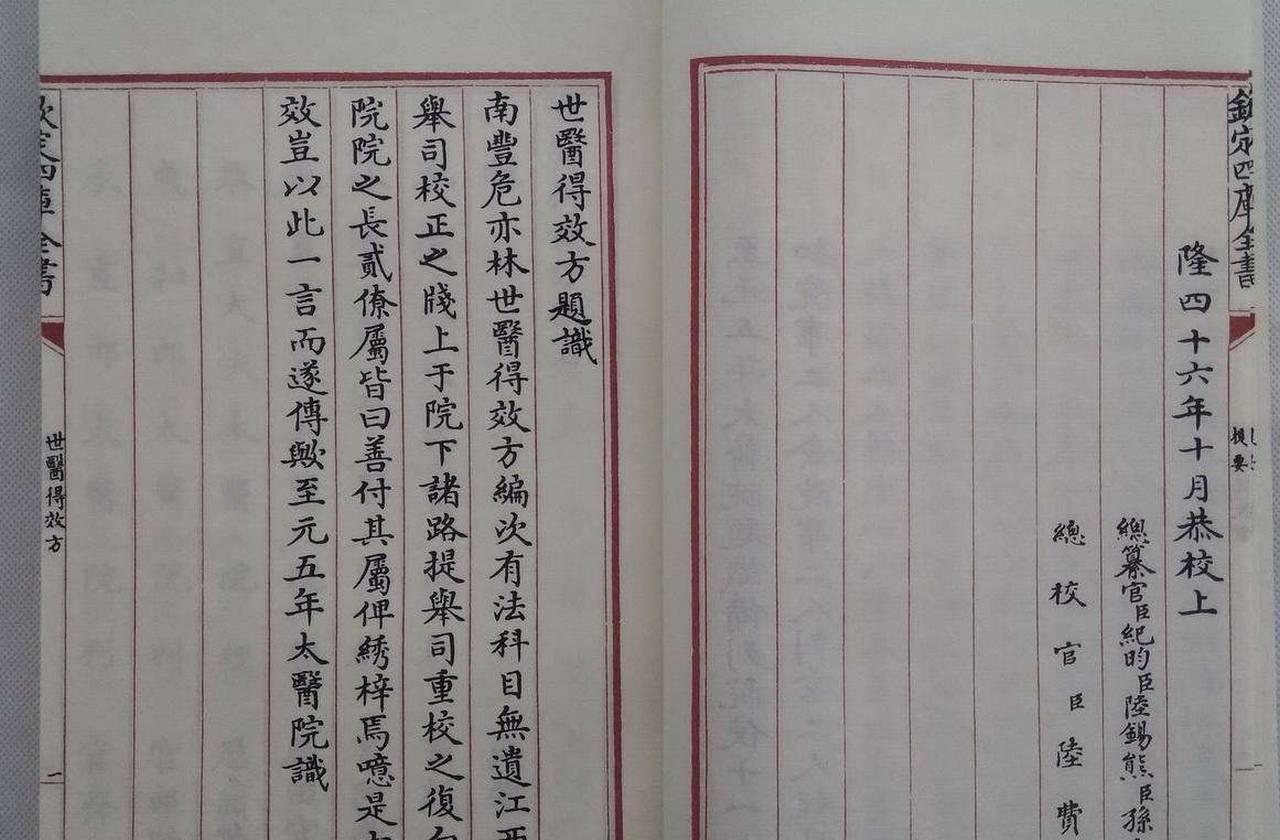 欽定四庫全書
提要
隆四十六年十月恭校上
總纂官臣紀昀臣陸錫熊臣孫
總校官臣陸費
世醫得效方題識
南豐危亦林世醫得效方編次有法科目無遺江西
舉司校正之牋上于院下諸路提舉司重校之復
院院之長貳僚屬皆曰善付其屬俾綉梓焉噫是
效豈以此一言而遂傳歟至元五年太醫院識
欽定四庫全書
世醫得效方
一